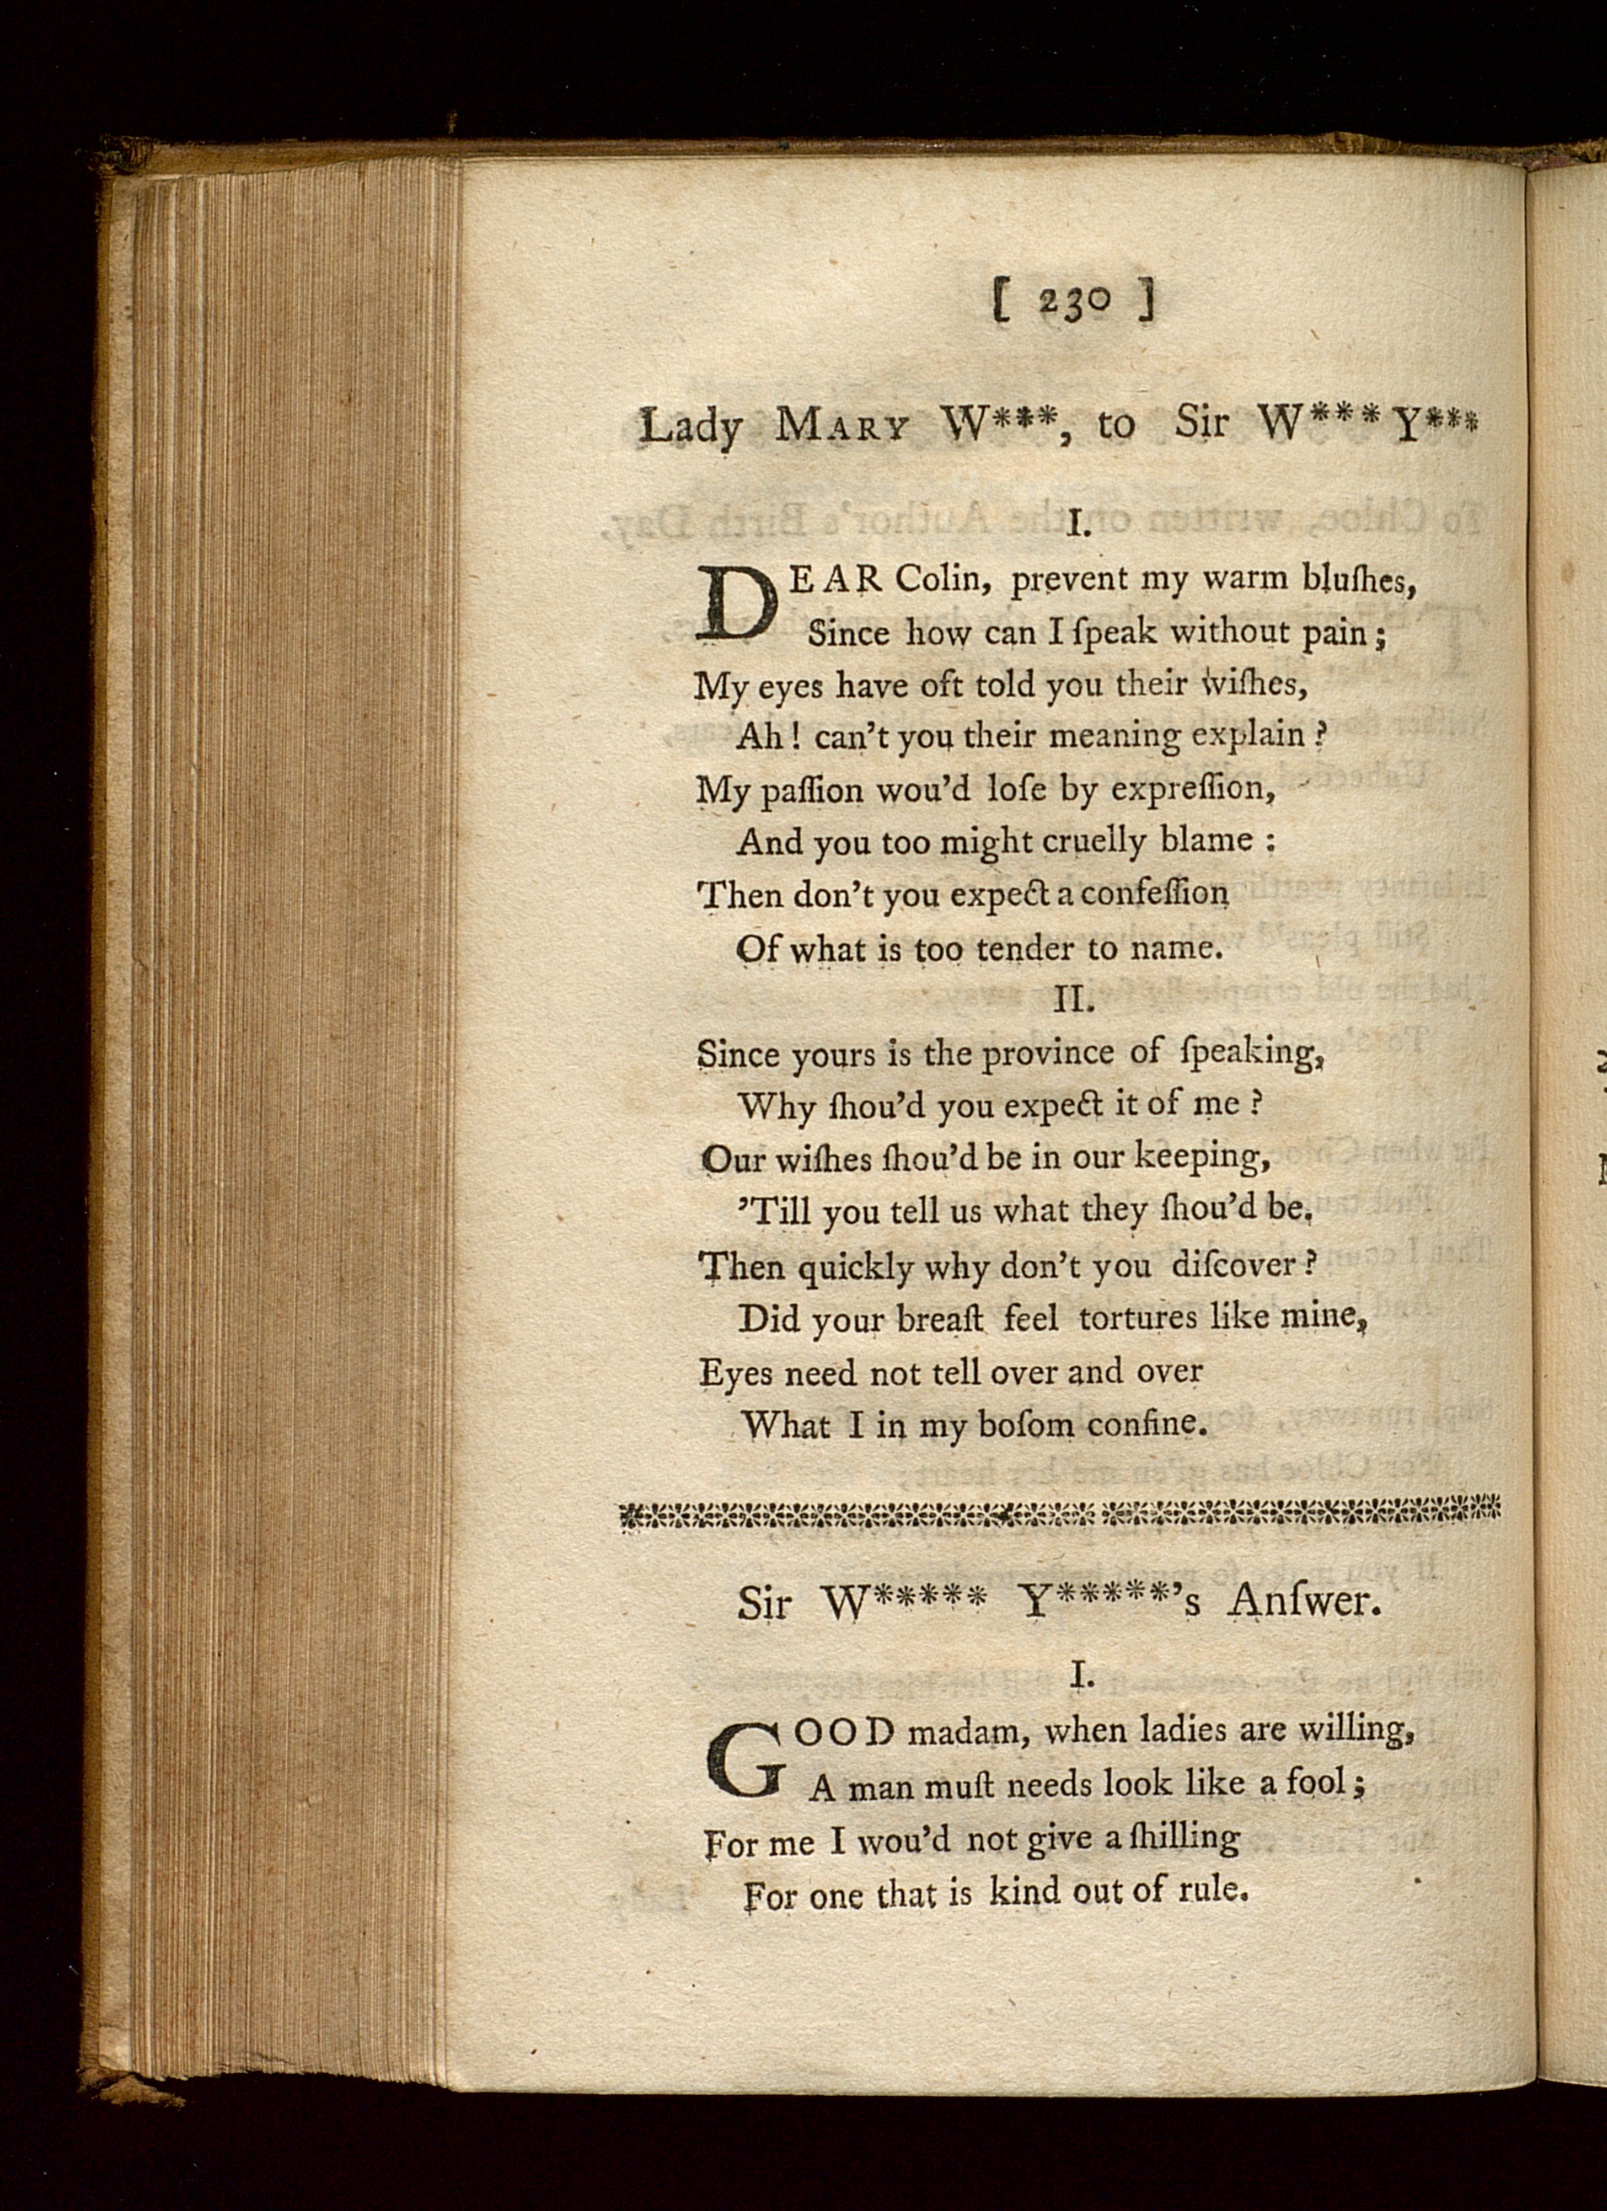 [ 230 ]
Lady MARY W***, to Sir W*** Y***
I.
DEAR Colin, prevent my warm bluſhes,
Since how can I ſpeak without pain;
My eyes have oft told you their wiſhes,
Ah! can't you their meaning explain?
My paſſion wou'd loſe by expreſſion,
And you too might cruelly blame:
Then don't you expect a confeſſion
Of what is too tender to name.
II.
Since yours is the province of ſpeaking,
Why ſhou'd you expect it of me?
Our wiſhes ſhou'd be in our keeping,
'Till you tell us what they ſhou'd be.
Then quickly why don't you diſcover?
Did your breaſt feel tortures like mine,
Eyes need not tell over and over
What I in my boſom confine.
Sir W***** Y*****'s Anſwer.
I.
GOOD madam, when ladies are willing,
A man muſt needs look like a fool;
For me I wou'd not give a ſhilling
For one that is kind out of rule.